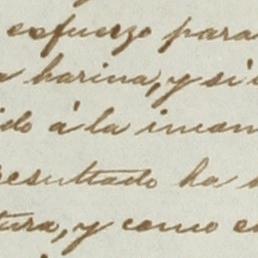 esfuerzo para
harina, y si
á la incan
resultado ha
tura, y como